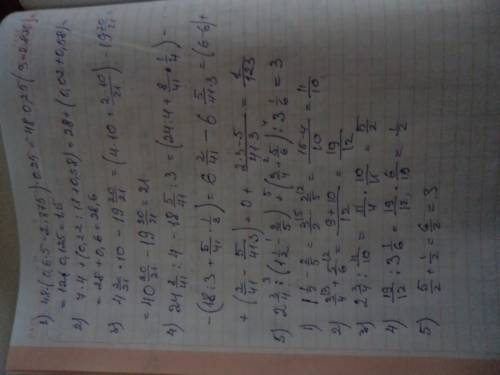 7:4 + (0,22:11+0,58) = 28 + (0,02+0,58) =
= 28 + 0,6 = 28,6
3) 4 2/21 · 10 - 19 20/21 = (4·10 + 2·10/21) - 19 20/21 =
= 40 20/21 - 19 20/21 = 21
4) 24 8/41 : 4 - 18 5/41 : 3 = (24:4 + 8/41 · 1/4) -
- (18:3 + 5/41 · 1/3) = 6 2/41 - 6 5/41·3 = (6-6) +
+ (2/41 - 5/41·3) = 0 + 2·3-5/41·3 = 1/123
5) 2 3/4 : (1 1/2 - 2/5) + (3/4 + 5/6) : 3 1/6 = 3
1) 1 1/2 - 2/5 = 3/2 - 2/5 = 15-4/10 = 11/10
2) 3/4 + 5/6 = 9+10/12 = 19/12
3) 2 3/4 : 11/10 = 11/4 · 10/11 = 5/2
4) 19/12 : 3 1/6 = 19/12 · 6/19 = 1/2
5) 5/2 + 1/2 = 6/2 = 3